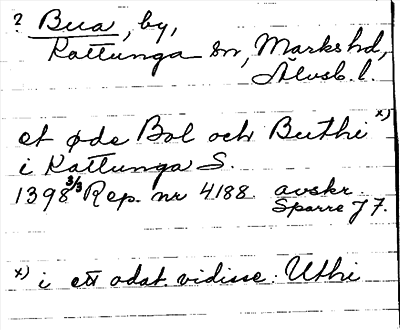 ? Bua, by,
Kattunga sn, Marks hd,
Älvsb. l.
et øde Bol och Buthi x)
i Kattunga S.
1398 3/3 Rep. nr 4188. avskr.
Sparre J 7.
x) i ett odat. vidisse: Uthi